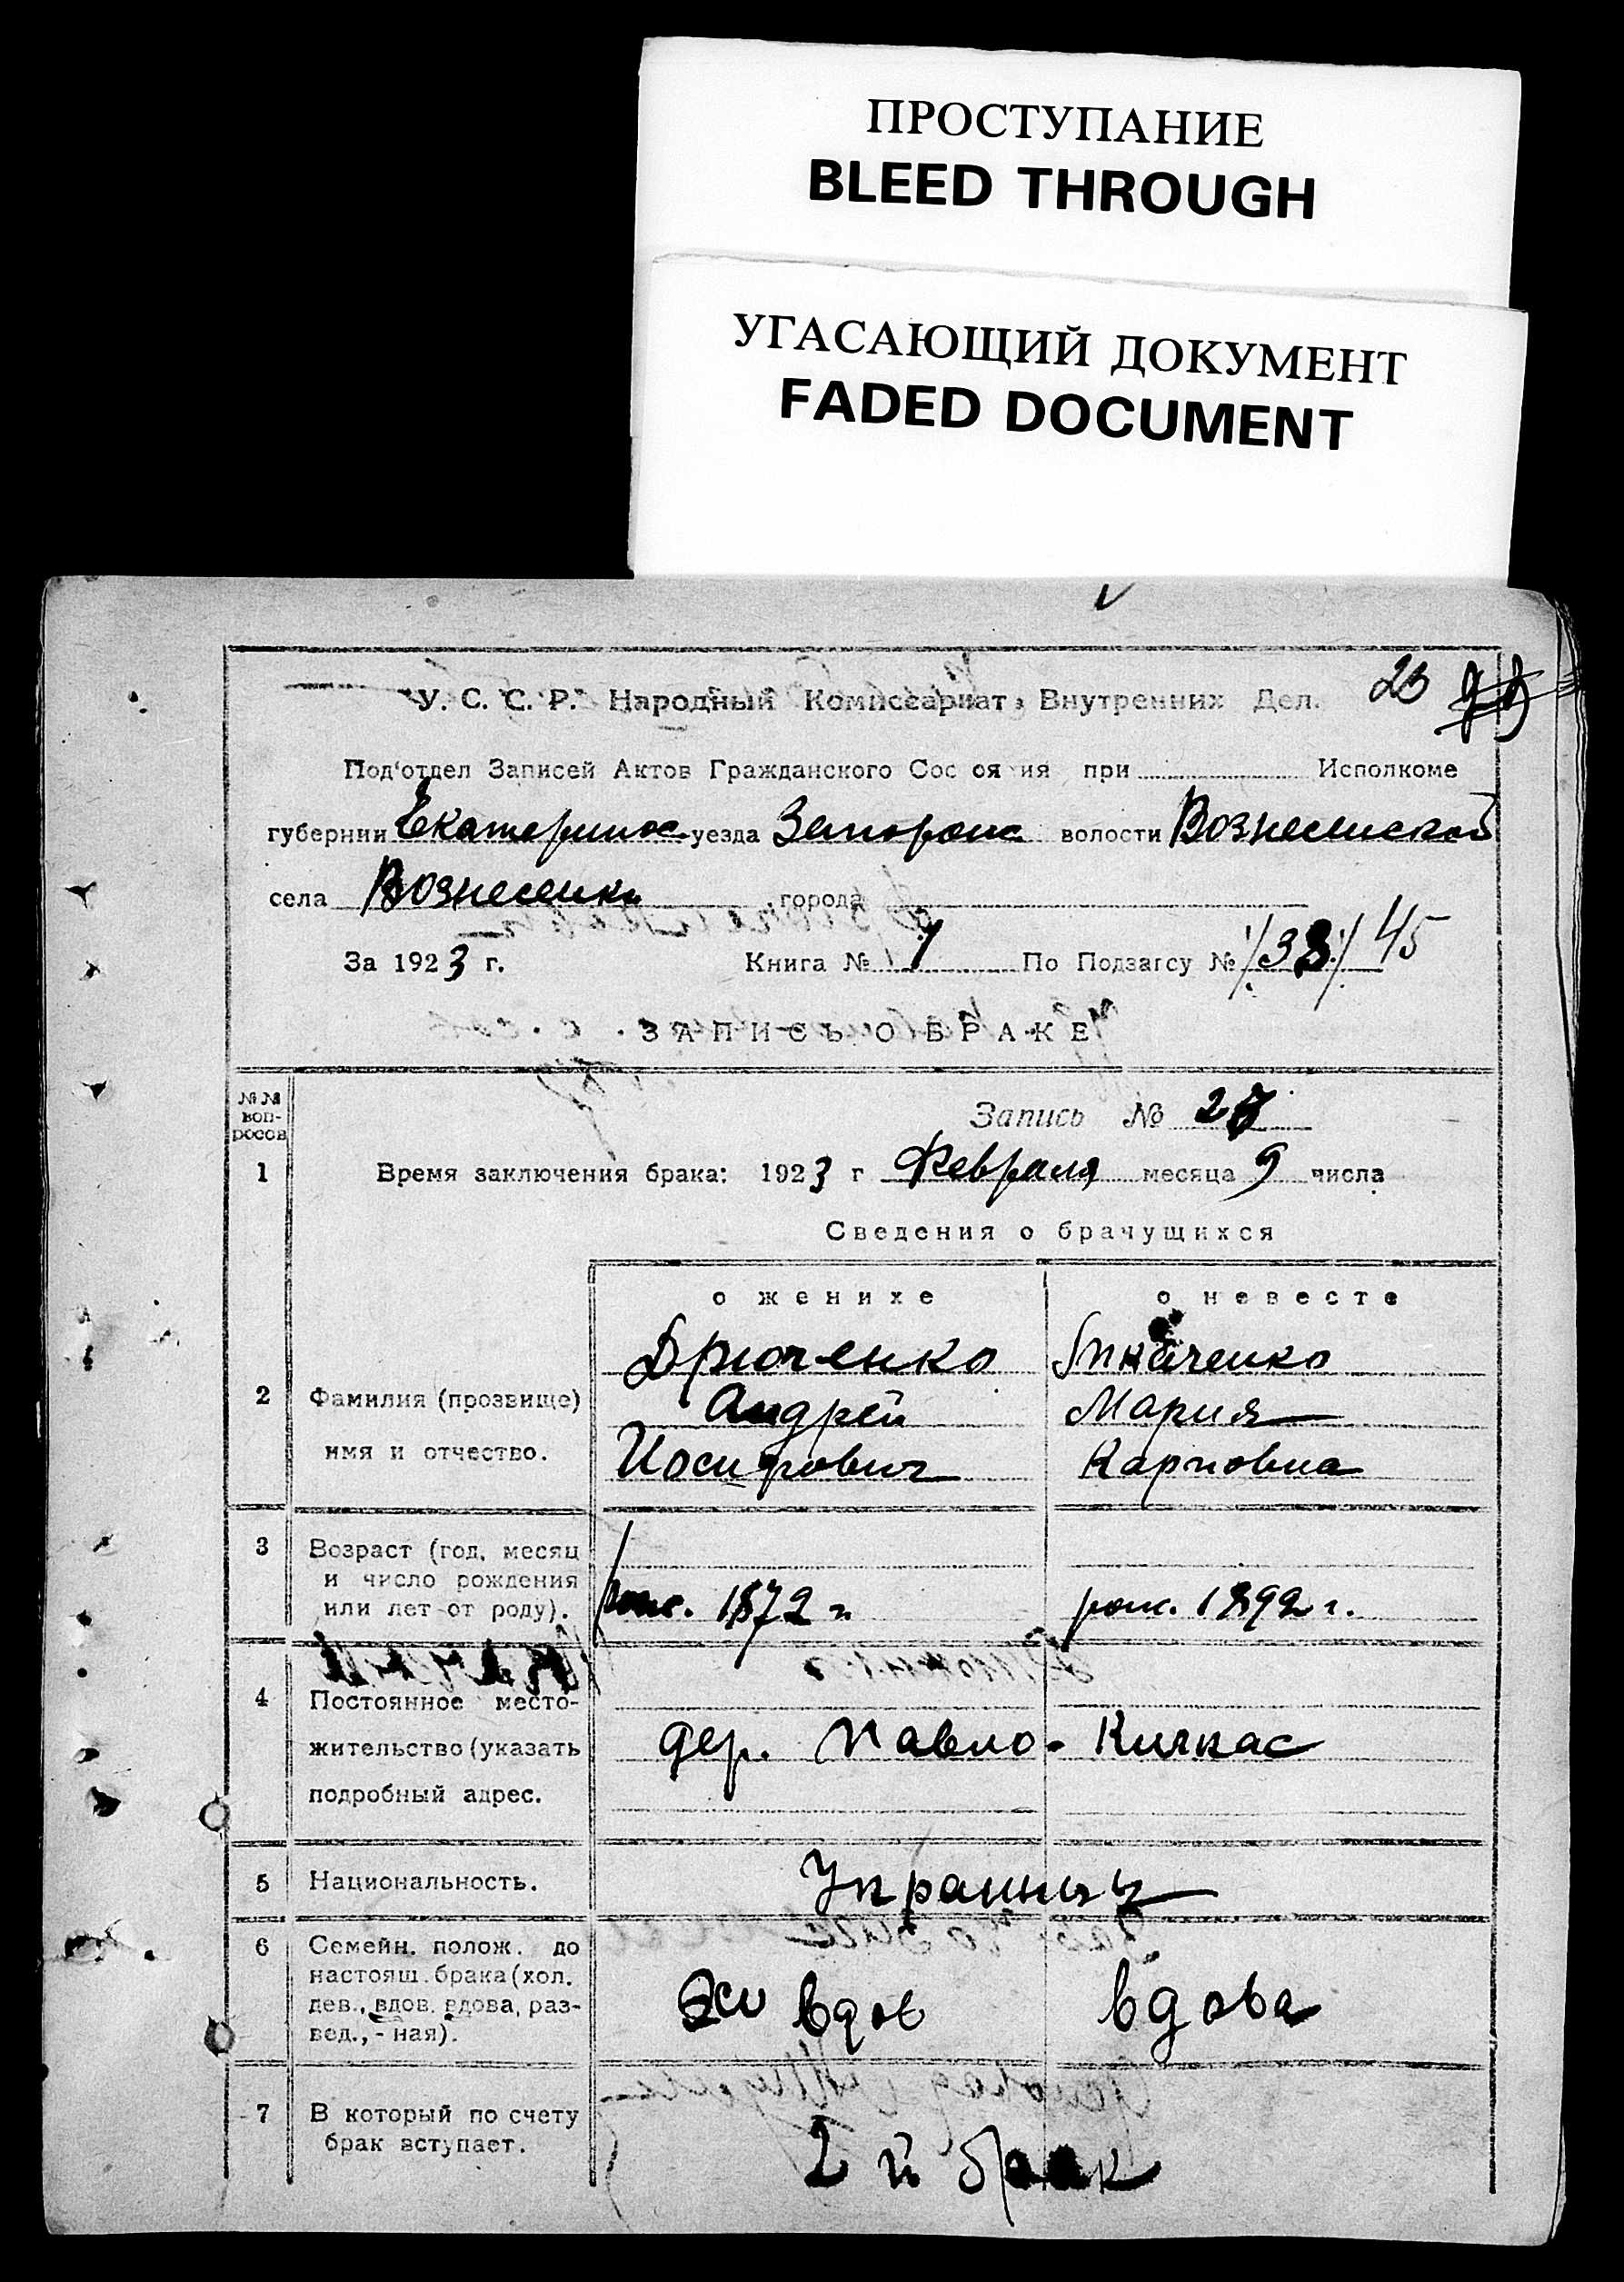 ПРОСТУПАНИЕ
BLEED THROUGH
УГАСАЮЩИЙ ДОКУМЕНТ
FADED DOCUMENT
23
У. С. С. Р. Народный Комиссариат Внутренних Дел.
Под'отдел Записей Актов Гражданского Сос оя ия при Исполкоме
губернии Екатеринос. уезда Запорож волости Вознесенской
села Вознесенка города
За 1923 г. Книга № 1 По Подзагсу № /33/ 45
ЗАПИСЬ О БРАКЕ
№№ вопросов
Запись №
1 Время заключения брака: 1923 г Февраля месяца 9 числа
Сведения о брачущихся
о женихе о невесте
Дрюченко Ткаченко
2 Фамилия (прозвище) Андрей Мария
имя и отчество. Иосифович Карповна
3 Возраст (год, месяц
и число рождения
или лет от роду). рож. 1872 г. рож. 1892 г.
4 Постоянное место-
жительство (указать дер. Павло-Кичкас
подробный адрес.
5 Национальность.
6 Семейн. полож. до
настоящ. брака (хол.
дев., вдов. вдова, раз- вдов вдова
вед., - ная).
7 В который по счету
брак вступает. 2 й брак